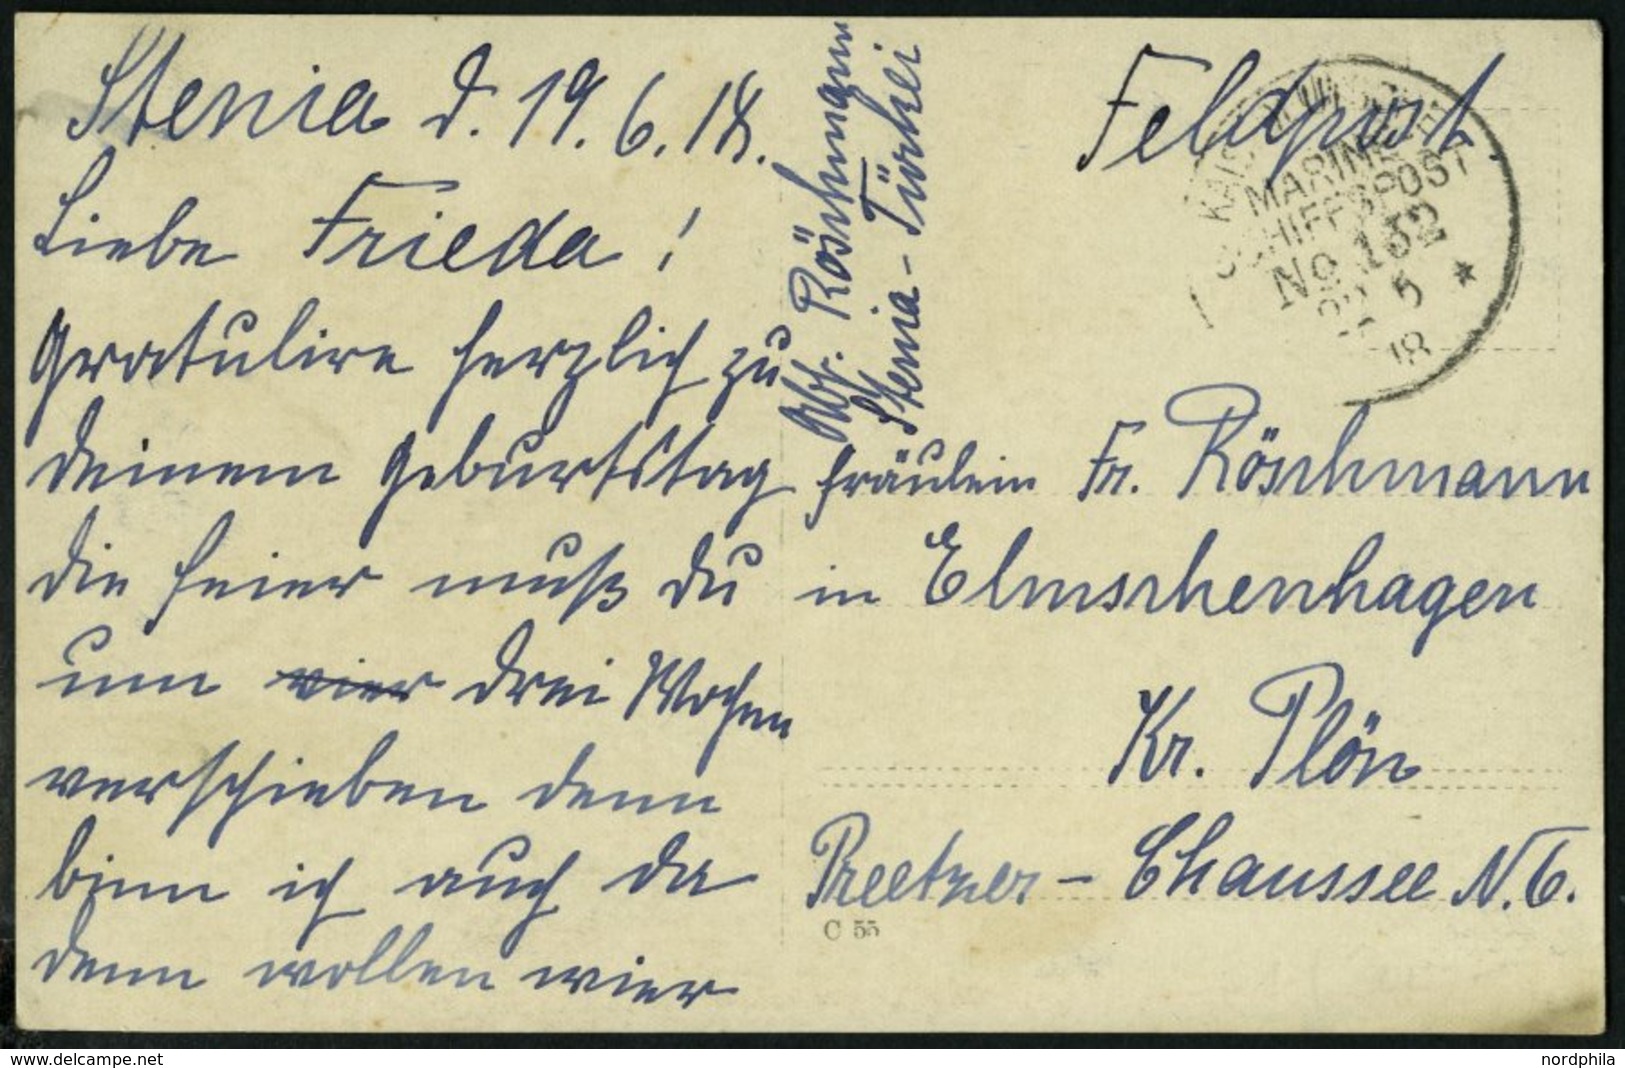 Stenia d. 19. 6. 18.
Liebe Frieda!
Gratulire herzlich zu
deinem Geburtstag
die Feier muß du
um vier drei Wochen
verschieben denn
binn ich auch da
denn wollen wier
Abs. Röschmann
Stenia - Türkei
Feldpost.
KAIS.
MARINE
SCHIFFSPOST
No 132
5
18
Fräulein Fr. Röschmann
in Elmschenhagen
Kr. Plön
Preetzer - Chaussee N. 6.
C 55
www.delcampe.net
nordphila